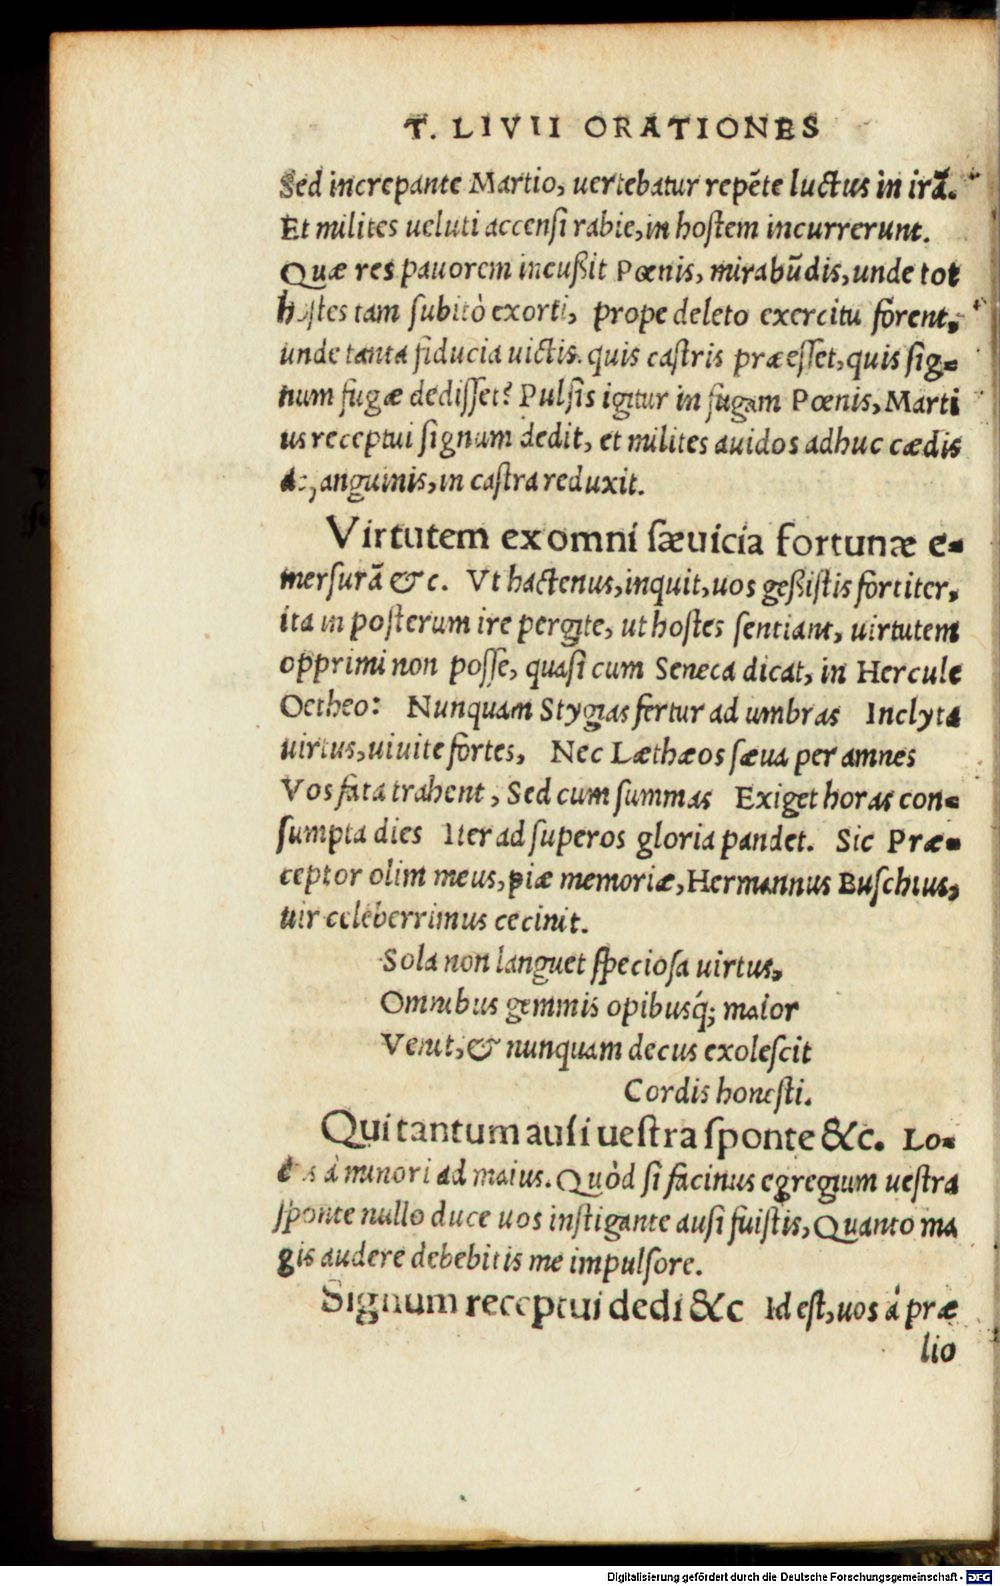 T. LIVII ORATIONES
Sed increpante Martio, uertebatur repẽte luctus in irã.
Et milites ueluti accensi rabie, in hostem incurrerunt.
Quæ res pauorem incußit Pœnis, mirabũdis, unde tot
hostes tam subitò exorti, prope deleto exercitu forent,
unde tanta fiducia uictis. quis castris præesset, quis sig=
num fugæ dedisset? Pulsis igitur in fugam Pœnis, Marti
us receptui signum dedit, et milites auidos adhuc cædis
ac sanguinis, in castra reduxit.
Virtutem ex omni sæuicia fortunæ e=
mersurã &c. Vt hactenus, inquit, uos geßistis fortiter,
ita in posterum ire pergite, ut hostes sentiant, uirtutem
opprimi non posse, quasi cum Seneca dicat, in Hercule
Oetheo: Nunquam Stygias fertur ad umbras Inclyta
uirtus, uiuite fortes, Nec Læthæos sæua per amnes
Vos fata trahent, Sed cum summas Exiget horas con=
sumpta dies Iter ad superos gloria pandet. Sic Præ=
ceptor olim meus, piæ memoriæ, Hermannus Buschius,
uir celeberrimus cecinit.
Sola non languet speciosa uirtus,
Omnibus gemmis opibusq́; maior
Venit, & nunquam decus exolescit
Cordis honesti.
Qui tantum ausi uestra sponte &c. Lo=
à minori ad maius. Quòd si facinus egregium uestra
sponte nullo duce uos instigante ausi fuistis, Quanto ma
gis audere debebitis me impulsore.
Signum receptui dedi &c Id est, uos à præ
lio
Digitalisierung gefördert durch die Deutsche Forschungsgemeinschaft - DFG